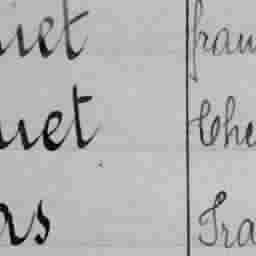 uet fran
uet Che
as Fra